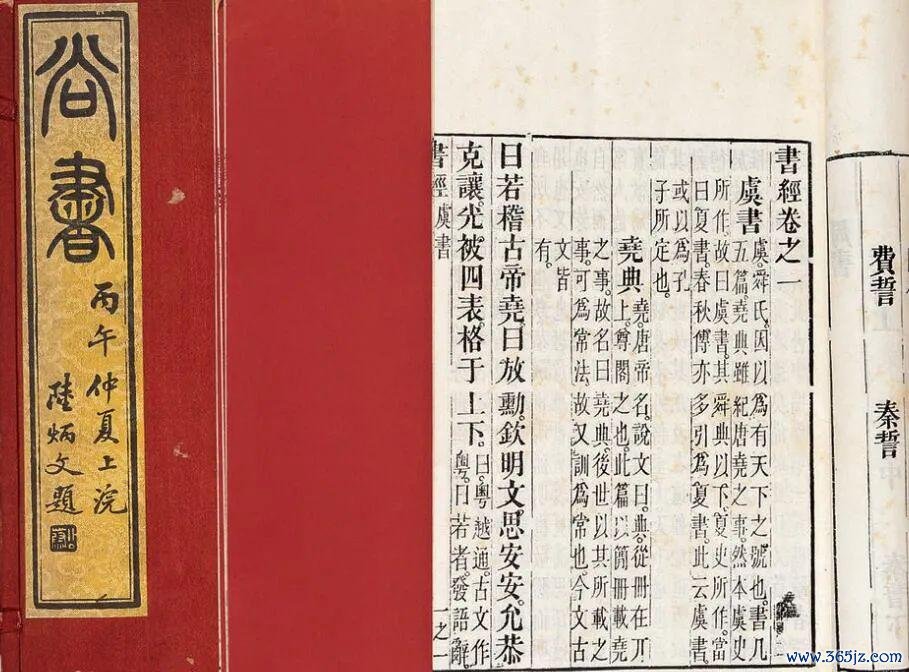 尚書
丙午仲夏上浣
陸炳文題
費誓
秦誓
書經卷之一
虞書 虞。舜氏。因以為有天下之號也。書凡
五篇。堯典雖紀唐堯之事。然本虞史
所作。故曰虞書。其舜典以下。夏史所作。當
曰夏書。春秋傳亦多引為夏書。此云虞書
或以為孔
子所定也。
堯典 堯。唐帝名。說文曰。典。從冊在丌
上。尊閣之也。此篇以簡冊載堯
之事。故名曰堯典。後世以其所載之
事。可為常法。故又訓為常也。今文古
文皆
有。
曰若稽古帝堯。曰放勳。欽明文思安安。允恭
克讓。光被四表。格于上下。曰。粵越通。古文作
粵。曰若者。發語辭
書經 虞書 一之一
www.365jz.com